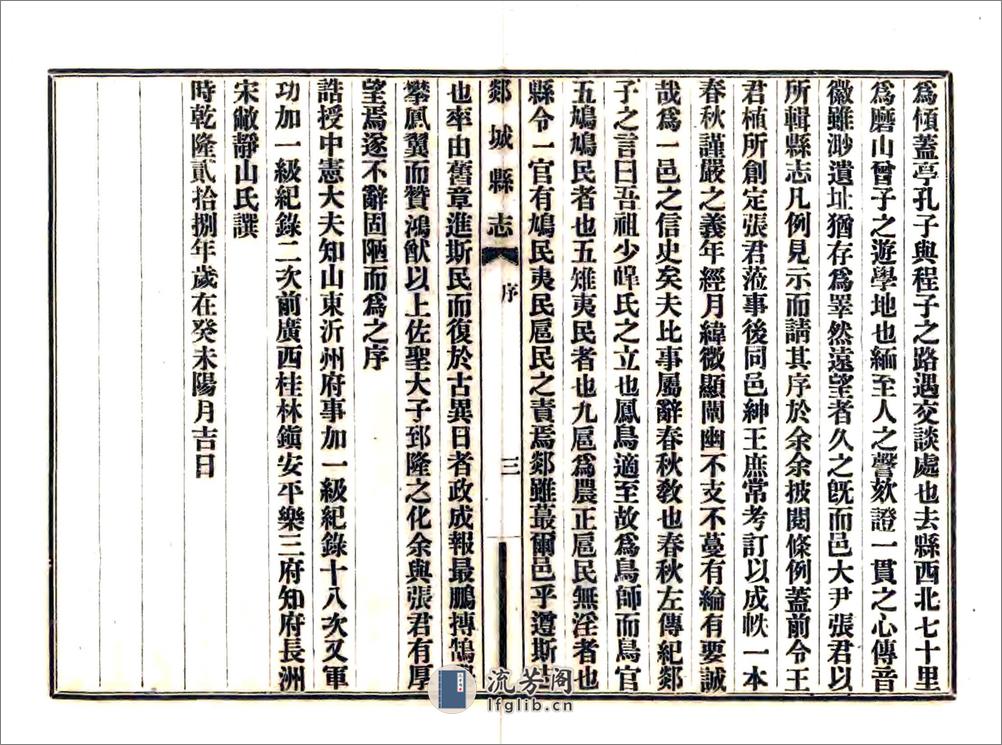 爲傾蓋亭孔子與程子之路遇交談處也去縣西北七十里
爲磨山曾子之遊學地也緬至人之謦欬證一貫之心傳音
徽雖渺遺址猶存爲睪然遠望者久之旣而邑大尹張君以
所輯縣志凡例見示而請其序於余余披閱條例蓋前令王
君植所創定張君蒞事後同邑紳王庶常考訂以成帙一本
春秋謹嚴之義年經月緯微顯闡幽不支不蔓有綸有要誠
哉爲一邑之信史矣夫比事屬辭春秋敎也春秋左傳紀郯
子之言曰吾祖少皞氏之立也鳳鳥適至故爲鳥師而鳥官
五鳩鳩民者也五雉夷民者也九扈爲農正扈民無淫者也
縣令一官有鳩民夷民扈民之責焉郯雖蕞爾邑乎遵斯
郯城縣志
序
三
也率由舊章進斯民而復於古異日者政成報最鵬搏鵠
攀鳳翼而贊鴻猷以上佐聖天子郅隆之化余與張君有厚
望焉遂不辭固陋而爲之序
誥授中憲大夫知山東沂州府事加一級紀錄十八次又軍
功加一級紀錄二次前廣西桂林鎭安平樂三府知府長洲
宋敝靜山氏譔
時乾隆貳拾捌年歲在癸未陽月吉日
流芳閣
lfglib.cn